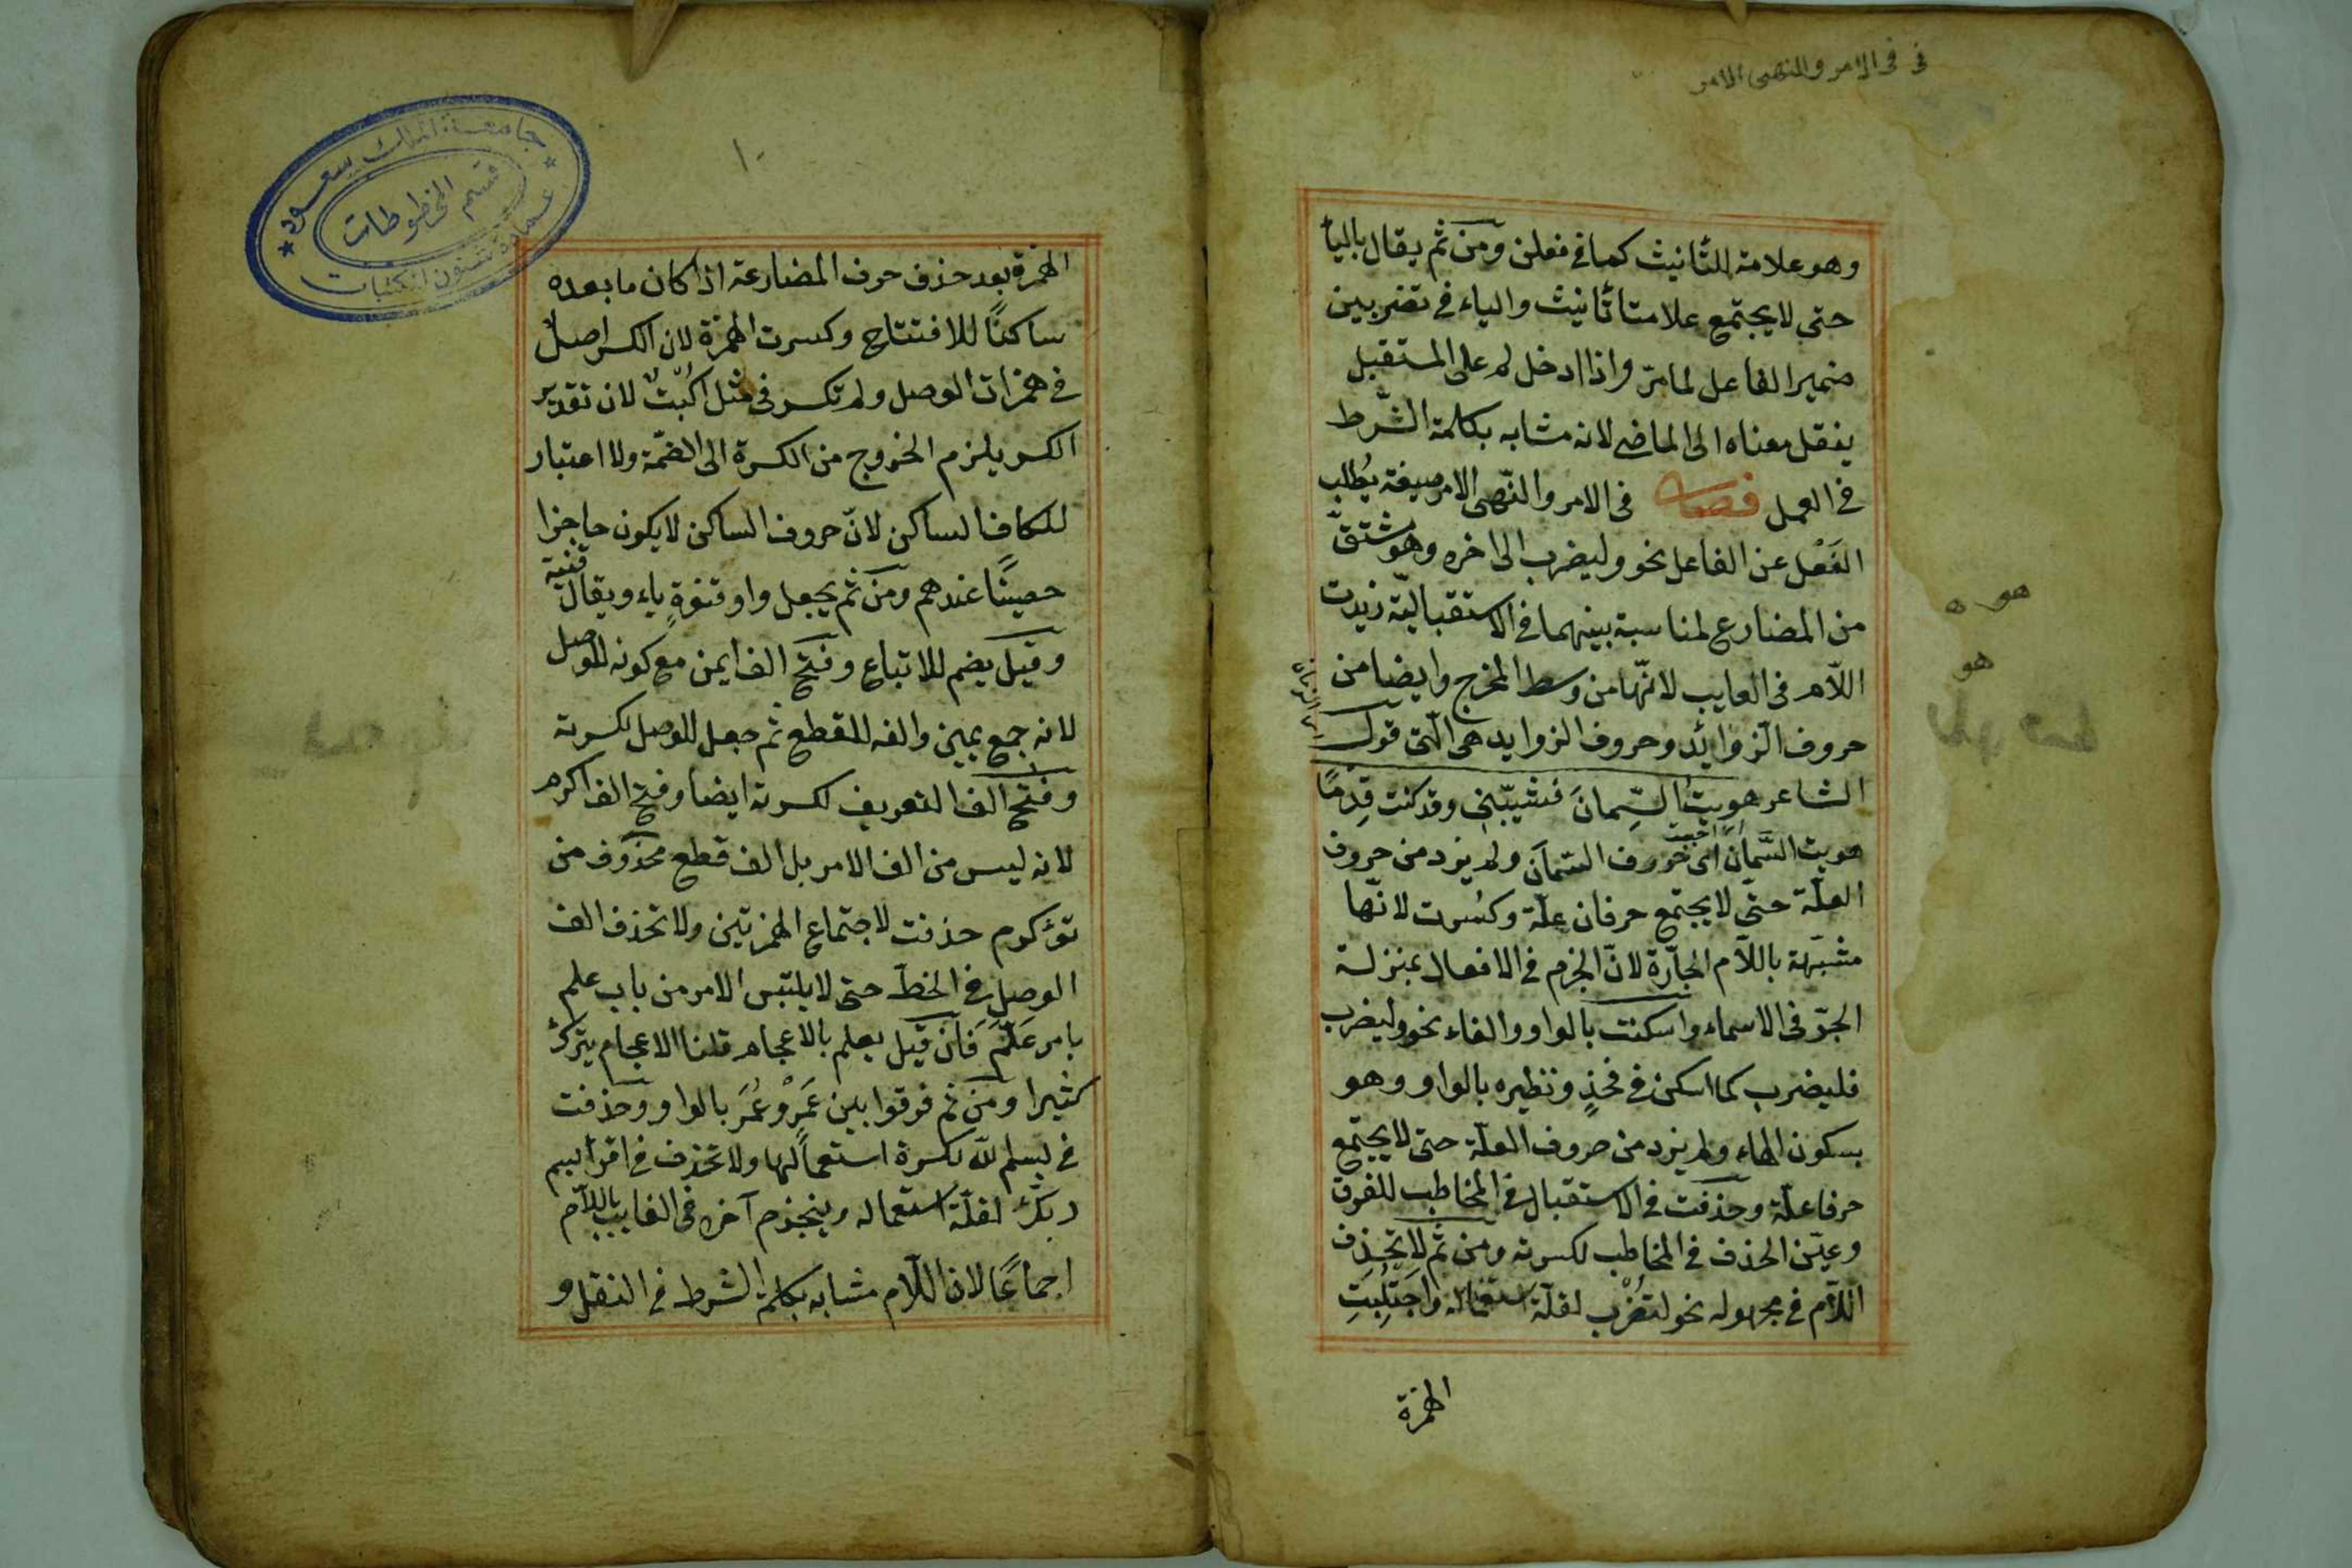 فى فى الامر والنهى الامر
وهو علامة للتأنيث كما فى فعلن ومن ثم يقال بالياء
حتى لا يجتمع علامتا تأنيث والياء فى تضربين
ضمير الفاعل لما مرّ واذا ادخل لم على المستقبل
ينقل معناه الى الماضى لانه مشابه بكلمة الشّرط
فى العمل فصل فى الامر والنّهى الامر صيغة يُطلب
الفَعْل عن الفاعل نحو وليضرب الى اخره وهو مشتقّ
من المضارع لمناسبة بينهما فى الاستقباليّة زيدت
اللّام فى الغايب لانّها من وسط المخرج وايضا من
حروف الزّوائد وحروف الزوايد هى الّتى قول
الشاعر هويت السِّمانَ فشيّبننى وقد كنت قِدْمًا
هويت السَّمان اى حروف السّمان ولم يزد من حروف
العلّة حتّى لا يجتمع حرفان علّة وكسُرت لانّها
مشبّهة باللّام الجارّة لانّ الجزم فى الافعال بمنزلة
الجرّ فى الاسماء واسكنت بالواو والفاء نحو وليضرب
فليضرب كما اسكن فى فخذٍ ونظيره بالواو وهو
بسكون الهاء ولم يزد من حروف العلّة حتى لا يجتمع
حرفا علّة وحذفت فى الاستقبال فى المخاطب للفرق
وعيّن الحذف فى المخاطب لكسرته ومن ثم لا تحذف
اللّام فى مجهوله نحو لتُضْرب لقلّة استعماله واجتُلِبَتِ
الهمزة
هو ه
هو
١٠
الهمزة بعد حذف حرف المضارعة اذا كان ما بعده
ساكنًا للافتتاح وكسرت الهمزة لان الكسر اصل
فى همزات الوصل ولم تكسر فى مثل اكُتُبْ لان تقدير
الكسر يلزم الخروج من الكسرة الى الضمّة ولا اعتبار
للكاف الساكن لانّ حروف الساكن لا يكون حاجزا
حصينًا عندهم ومن ثم يجعل واو قنوةٍ ياء ويقال قنية
وقيل يضم للاتباع وفتح الف ايمن مع كونه للوصل
لانه جمع يمين والفه للقطع ثم جعل للوصل لكسرته
وفتح الف التعريف لكسرته ايضا وفتح الف اكرم
لانه ليس من الف الامر بل الف قطع محذوف من
تؤكرم حذفت لاجتماع الهمزتين ولا تحذف الف
الوصل فى الخطّ حتى لا يلتبس الامر من باب علم
بامر عَلّمَ فَان قيل يعلم بالاعجام قلنا الاعجام يترك
كثيرا ومن ثم فرقوا بين عَمْرٍو عُمَر بالواو وحذفت
فى بسم لله لكسرة استعمالها ولا تحذف فى اقرا بسم
ربّك لقلّة استعماله وينجزم آخره فى الغايب باللّام
اجماعًا لان اللّام مشابه بكلمة الشرط فى النقل و
جامعة الملك سعود
قسم المخطوطات
عمادة شئون المكتبات